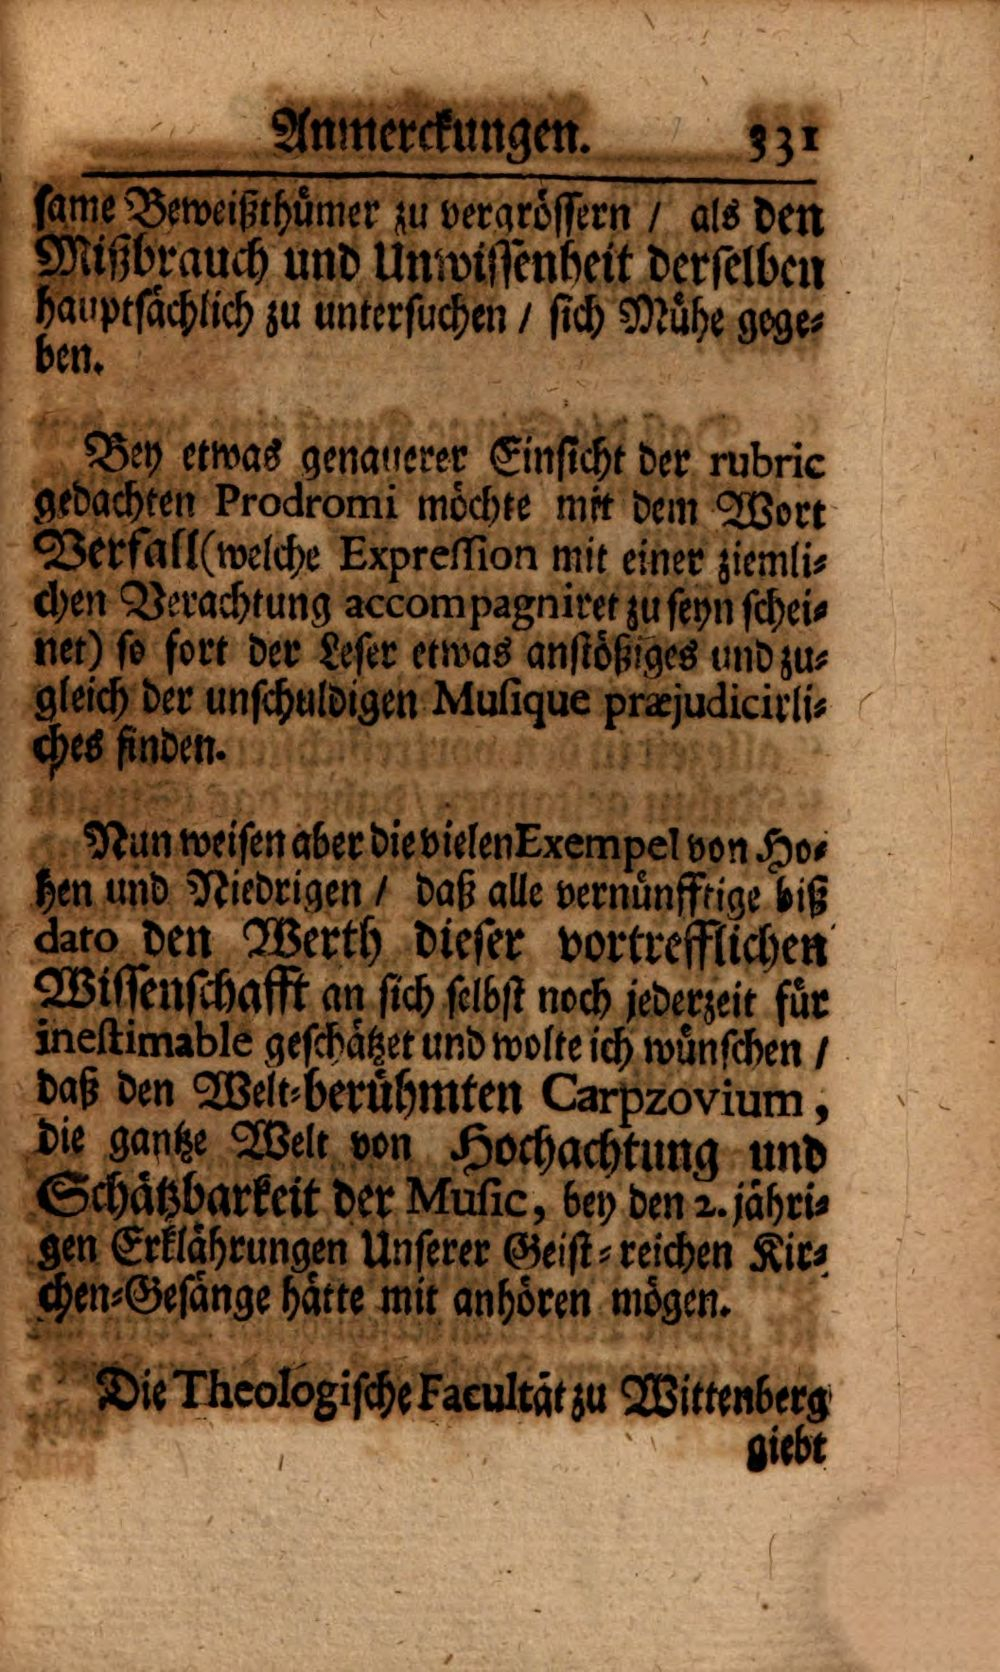 Anmerckungen. 331
same Beweißthümer zu vergrössern / als den
Mißbrauch und Unwissenheit derselben
hauptsächlich zu untersuchen / sich Mühe gege-
ben.
Bey etwas genauerer Einsicht der rubric
gedachten Prodromi möchte mit dem Wort
Verfall (welche Expression mit einer ziemli-
chen Verachtung accompagniret zu seyn schei-
net) so fort der Leser etwas anstößiges und zu-
gleich der unschuldigen Musique præjudicirli-
ches finden.
Nun weisen aber die vielen Exempel von Ho-
hen und Niedrigen / daß alle vernünfftige biß
dato den Werth dieser vortrefflichen
Wissenschafft an sich selbst noch jederzeit für
inestimable geschätzet und wolte ich wünschen /
daß den Welt-berühmten Carpzovium,
die gantze Welt von Hochachtung und
Schätzbarkeit der Music, bey den 2. jähri-
gen Erklährungen Unserer Geist-reichen Kir-
chen-Gesänge hätte mit anhören mögen.
Die Theologische Facultät zu Wittenberg
giebt